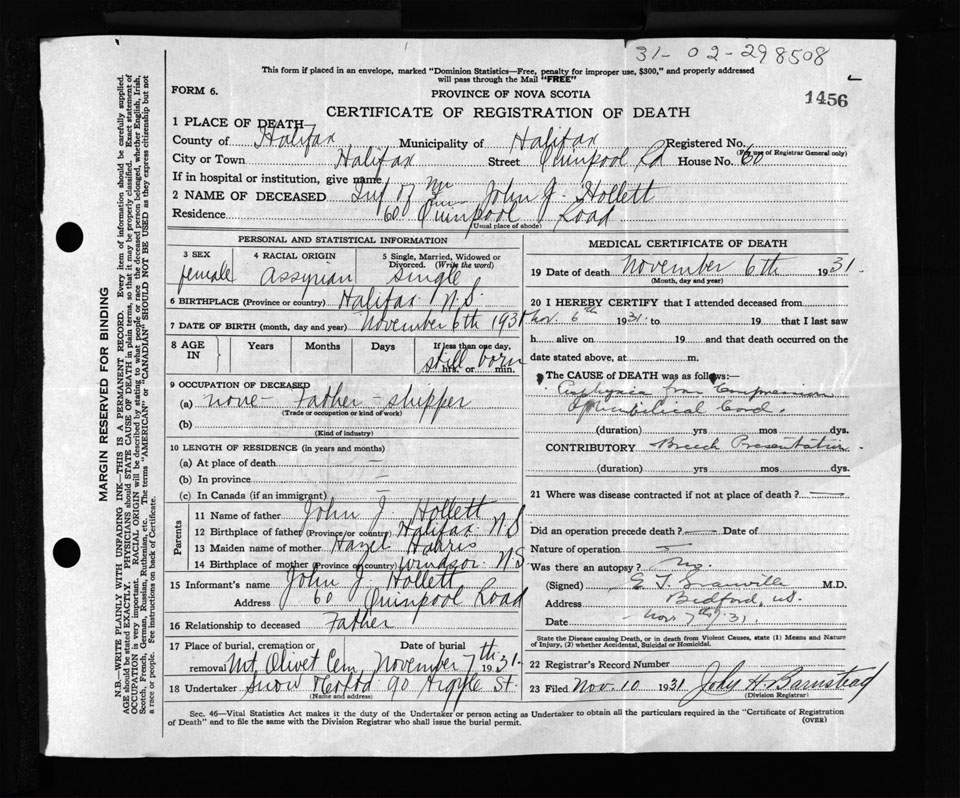 31-02-298508
This form if placed in an envelope, marked "Dominion Statistics—Free, penalty for improper use, $300," and properly addressed
will pass through the Mail "FREE"
FORM 6.
PROVINCE OF NOVA SCOTIA
1456
CERTIFICATE OF REGISTRATION OF DEATH
1 PLACE OF DEATH
County of Halifax Municipality of Halifax Registered No.
(For use of Registrar General only)
City or Town Halifax Street Quinpool Rd House No. 60
If in hospital or institution, give name
2 NAME OF DECEASED Inf of Mr John J. Hollett
Residence 60 Quinpool Road
(Usual place of abode)
PERSONAL AND STATISTICAL INFORMATION
3 SEX female
4 RACIAL ORIGIN Assyrian
5 Single, Married, Widowed or
Divorced. (Write the word)
Single
6 BIRTHPLACE (Province or country) Halifax N.S.
7 DATE OF BIRTH (month, day and year) November 6th 1931
8 AGE IN Years Months Days If less than one day,
hrs. or min.
still born
9 OCCUPATION OF DECEASED
(a) none - Father - shipper
(Trade or occupation or kind of work)
(b)
(Kind of industry)
10 LENGTH OF RESIDENCE (in years and months)
(a) At place of death
(b) In province
(c) In Canada (if an immigrant)
Parents
11 Name of father John J. Hollett
12 Birthplace of father (Province or country) Halifax N.S
13 Maiden name of mother Hazel Harris
14 Birthplace of mother (Province or country) Windsor N.S
15 Informant's name John J. Hollett
Address 60 Quinpool Road
16 Relationship to deceased Father
17 Place of burial, cremation or
removal Mt Olivet Cem,
Date of burial
November 7th 1931
18 Undertaker Snow & Co Ltd 90 Argyle St.
(Name and address)
MEDICAL CERTIFICATE OF DEATH
19 Date of death November 6th 1931.
(Month, day and year)
20 I HEREBY CERTIFY that I attended deceased from
Nov. 6th 1931 to 19 that I last saw
h alive on 19 and that death occurred on the
date stated above, at m.
The CAUSE OF DEATH was as follows:—
Asphyxia from Compression
of umbilical Cord.
(duration) yrs mos dys.
CONTRIBUTORY Breech Presentation
(duration) yrs mos dys.
21 Where was disease contracted if not at place of death?
Did an operation precede death? Date of
Nature of operation
Was there an autopsy? No.
(Signed) E. T. Granville M.D.
Address Bedford, N.S.
Date Nov 7th/31.
State the Disease causing Death, or in death from Violent Causes, state (1) Means and Nature
of Injury, (2) whether Accidental, Suicidal or Homicidal.
22 Registrar's Record Number
23 Filed Nov. 10 1931 John H. Barnstead
(Division Registrar)
Sec. 46—Vital Statistics Act makes it the duty of the Undertaker or person acting as Undertaker to obtain all the particulars required in the "Certificate of Registration
of Death" and to file the same with the Division Registrar who shall issue the burial permit.
(OVER)
MARGIN RESERVED FOR BINDING
N.B.—WRITE PLAINLY WITH UNFADING INK—THIS IS A PERMANENT RECORD. Every item of information should be carefully supplied.
AGE should be stated EXACTLY. PHYSICIANS should STATE CAUSE OF DEATH in plain terms, so that it may be properly classified. Exact statement of
OCCUPATION is very important. RACIAL ORIGIN will be described by stating to what people or race the deceased person belonged, whether English, Irish,
Scotch, French, German, Russian, Ruthenian, etc. The terms "AMERICAN" or "CANADIAN" SHOULD NOT BE USED as they express citizenship but not
a race or people. See instructions on back of Certificate.